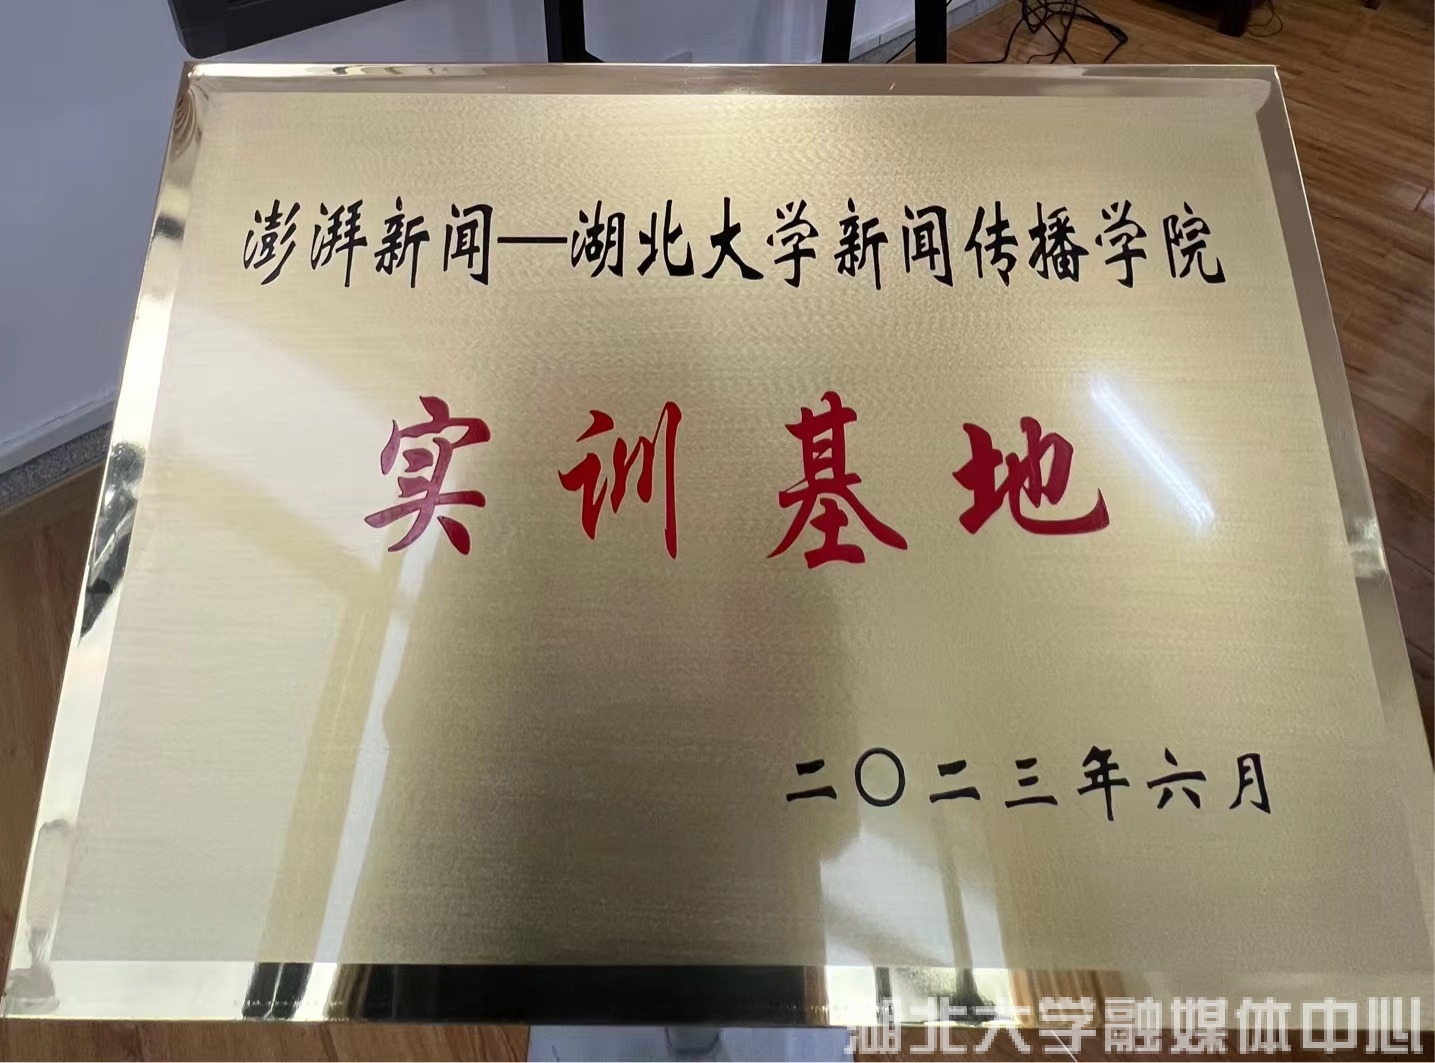 澎湃新闻—湖北大学新闻传播学院
实训基地
二〇二三年六月
湖北大学融媒体中心